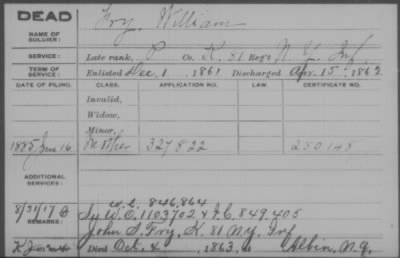 DEAD
Fry, William
NAME OF SOLDIER:
SERVICE:
Late rank, P Co. K, 81 Reg't N.Y. Inf.
TERM OF SERVICE:
Enlisted Dec. 1, 1861 Discharged Apr. 15, 1862
DATE OF FILING. CLASS. APPLICATION NO. LAW. CERTIFICATE NO.
Invalid,
Widow,
Minor,
1885 June 16 Mother 327822
ADDITIONAL SERVICES:
846,864
8/31/17
REMARKS:
W.O. 1103702 & 849,405
John S. Fry, K. 81 N.Y. Inf
Died Oct. 4, 1863, at Albin, N.Y.